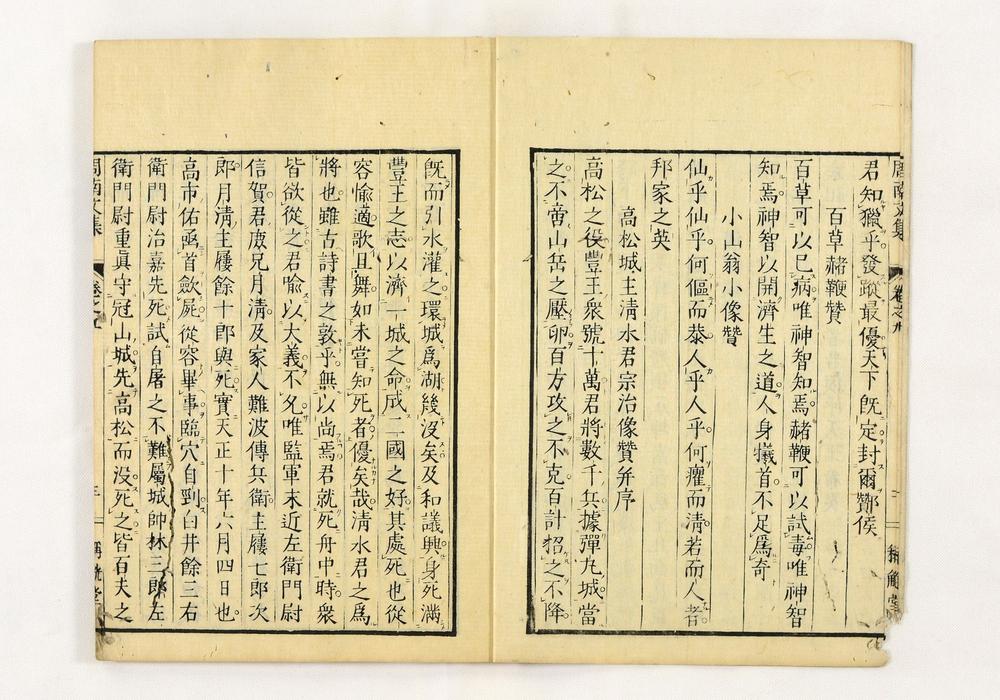 君知獵乎發蹤最優天下既定封爾酇侯
百草赭鞭贊
百草可以已病唯神智知焉赭鞭可以試毒唯神智
知焉神智以開濟生之道人身犧首不足爲奇
小山翁小像贊
仙乎仙乎何傴而恭人乎人乎何癯而淸若而人者
邦家之英
高松城主淸水君宗治像贊幷序
高松之役豐王衆號十萬君將數千兵據彈丸城當
之不啻山岳之壓卵百方攻之不克百計招之不降
既而引水灌之環城爲湖幾沒矣及和議興身死滿
豐王之志以濟一城之命成二國之好其處死也從
容愉適歌且舞如未嘗知死者優矣哉淸水君之爲
將也雖古詩書之敦乎無以尚焉君就死舟中時衆
皆欲從之君喩以大義不允唯監軍末近左衛門尉
信賀君庶兄月淸及家人難波傳兵衛主屨七郎次
郎月淸主屨餘十郎與死實天正十年六月四日也
高市佑亟首斂屍從容畢事臨穴自剄白井餘三右
衛門尉治嘉先死試自屠之不難屬城帥林三郎左
衛門尉重眞守冠山城先高松而沒死之皆百夫之